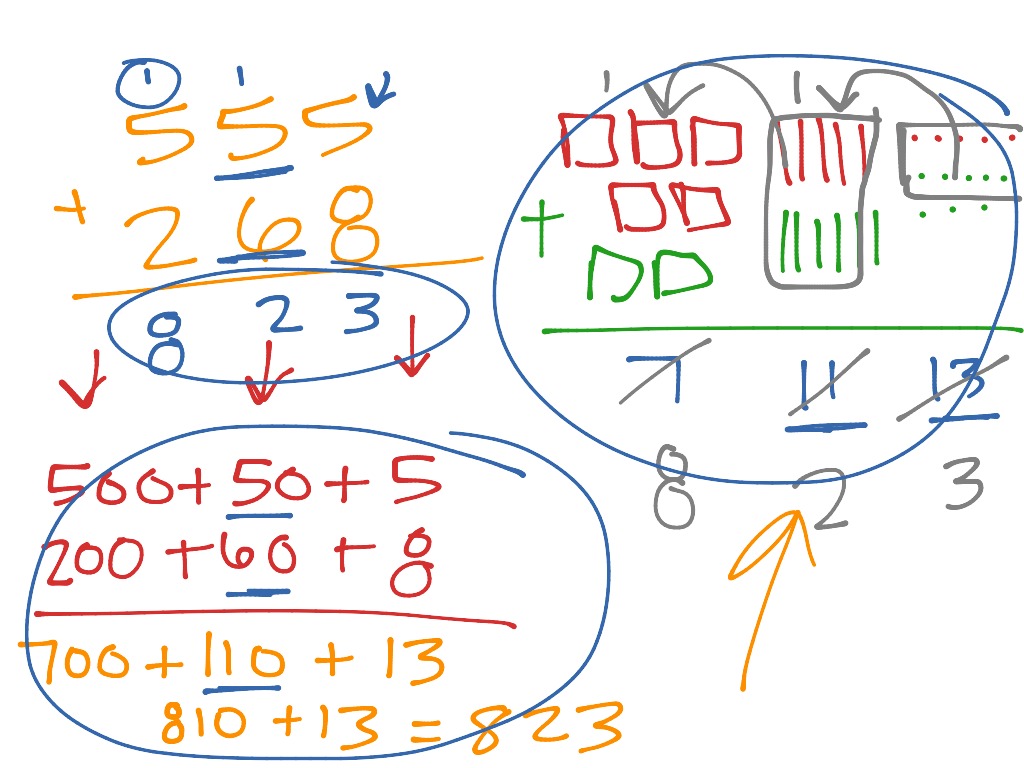 1 1
555
+ 268
823
500 + 50 + 5
200 + 60 + 8
700 + 110 + 13
810 + 13 = 823
1 1
+
7 11 13
8 2 3